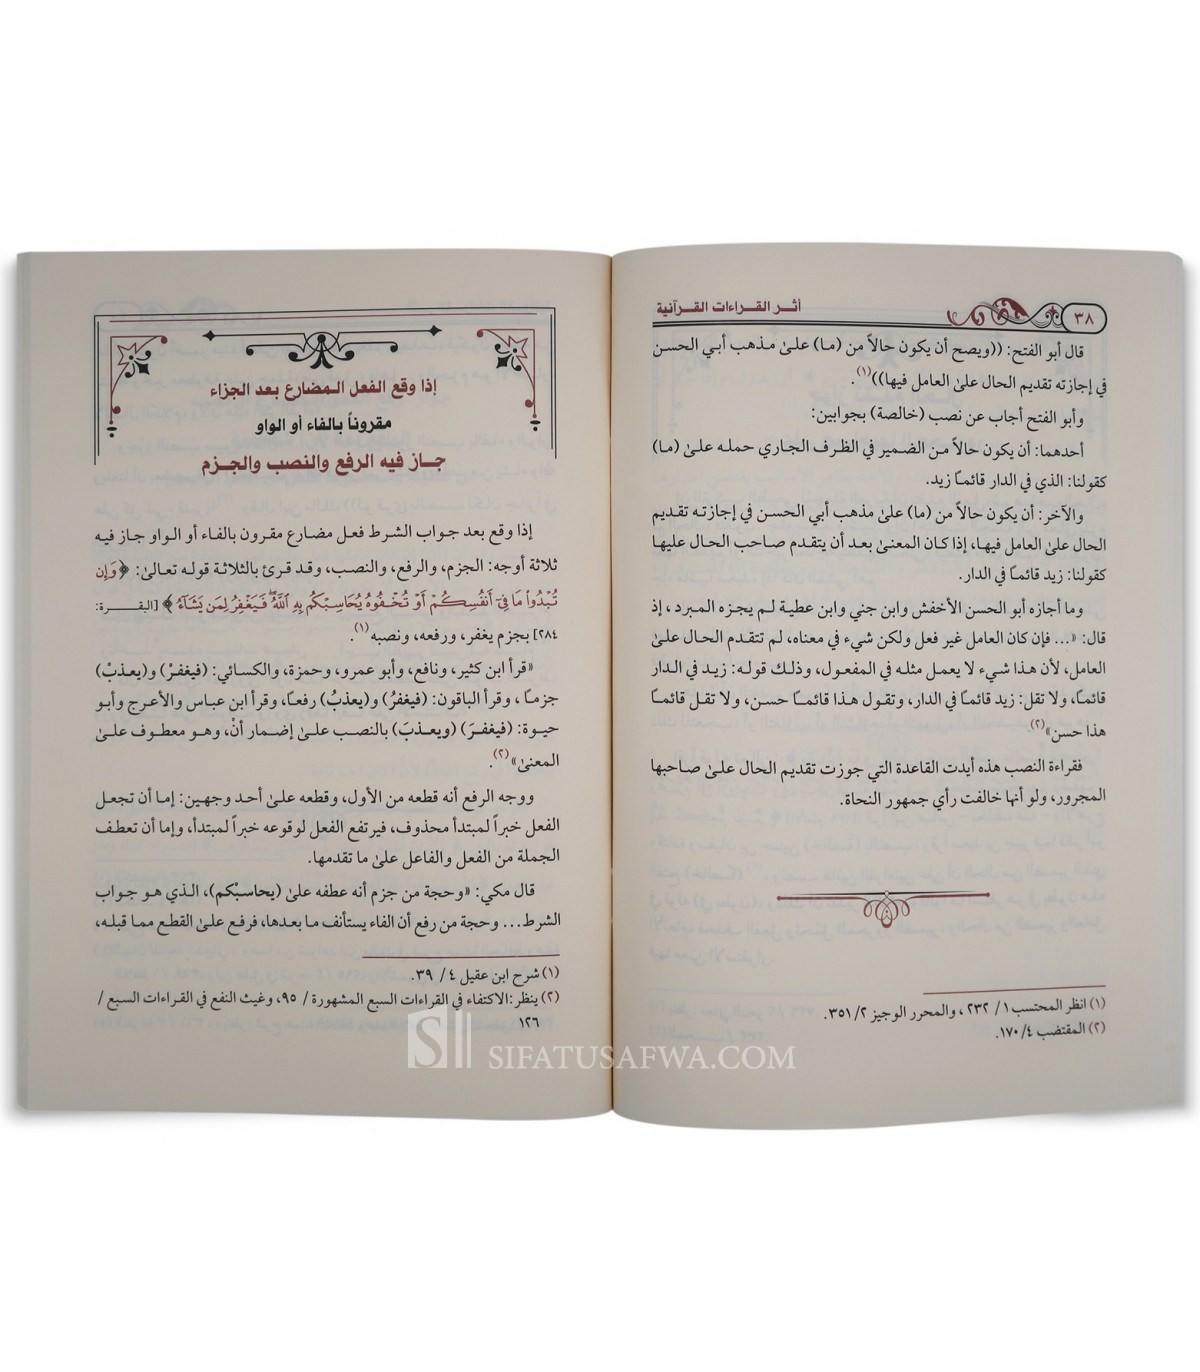 ٣٨
أثر القراءات القرآنية
قال أبو الفتح: ((ويصح أن يكون حالاً من (ما) علىٰ مذهب أبي الحسن
في إجازته تقديم الحال علىٰ العامل فيها))(١).
وأبو الفتح أجاب عن نصب (خالصة) بجوابين:
أحدهما: أن يكون حالاً من الضمير في الظرف الجاري حمله علىٰ (ما)
كقولنا: الذي في الدار قائمًا زيد.
والآخر: أن يكون حالاً من (ما) علىٰ مذهب أبي الحسن في إجازته تقديم
الحال علىٰ العامل فيها، إذا كان المعنىٰ بعد أن يتقدم صاحب الحال عليها
كقولنا: زيد قائمًا في الدار.
وما أجازه أبو الحسن الأخفش وابن جني وابن عطية لم يجزه المبرد، إذ
قال: «... فإن كان العامل غير فعل ولكن شيء في معناه، لم تتقدم الحال علىٰ
العامل، لأن هذا شيء لا يعمل مثله في المفعول، وذلك قوله: زيد في الدار
قائمًا، ولا تقل: زيد قائمًا في الدار، وتقول هذا قائمًا حسن، ولا تقل قائمًا
هذا حسن»(٢).
فقراءة النصب هذه أيدت القاعدة التي جوزت تقديم الحال علىٰ صاحبها
المجرور، ولو أنها خالفت رأي جمهور النحاة.
(١) انظر المحتسب ١/ ٢٣٢ ، والمحرر الوجيز ٢/ ٣٥١.
(٢) المقتضب ٤/ ١٧٠.
إذا وقع الفعل المضارع بعد الجزاء
مقروناً بالفاء أو الواو
جاز فيه الرفع والنصب والجزم
إذا وقع بعد جواب الشرط فعل مضارع مقرون بالفاء أو الواو جاز فيه
ثلاثة أوجه: الجزم، والرفع، والنصب، وقد قرئ بالثلاثة قوله تعالىٰ: ﴿وَإِن
تُبْدُوا۟ مَا فِىٓ أَنفُسِكُمْ أَوْ تُخْفُوهُ يُحَاسِبْكُم بِهِ ٱللَّهُ ۖ فَيَغْفِرُ لِمَن يَشَآءُ﴾ [البقرة:
٢٨٤] بجزم يغفر، ورفعه، ونصبه(١).
«قرأ ابن كثير، ونافع، وأبو عمرو، وحمزة، والكسائي: (فيغفرْ) و(يعذبْ)
جزمًا، وقرأ الباقون: (فيغفرُ) و(يعذبُ) رفعًا، وقرأ ابن عباس والأعرج وأبو
حيوة: (فيغفرَ) (ويعذبَ) بالنصب علىٰ إضمار أنْ، وهو معطوف علىٰ
المعنىٰ»(٢).
ووجه الرفع أنه قطعه من الأول، وقطعه علىٰ أحد وجهين: إما أن تجعل
الفعل خبراً لمبتدأ محذوف، فيرتفع الفعل لوقوعه خبراً لمبتدأ، وإما أن تعطف
الجملة من الفعل والفاعل علىٰ ما تقدمها.
قال مكي: «وحجة من جزم أنه عطفه علىٰ (يحاسبْكم)، الذي هو جواب
الشرط... وحجة من رفع أن الفاء يستأنف ما بعدها، فرفع علىٰ القطع مما قبله،
(١) شرح ابن عقيل ٤/ ٣٩.
(٢) ينظر: الاكتفاء في القراءات السبع المشهورة / ٩٥، وغيث النفع في القراءات السبع /
١٢٦
SIFATUSAFWA.COM